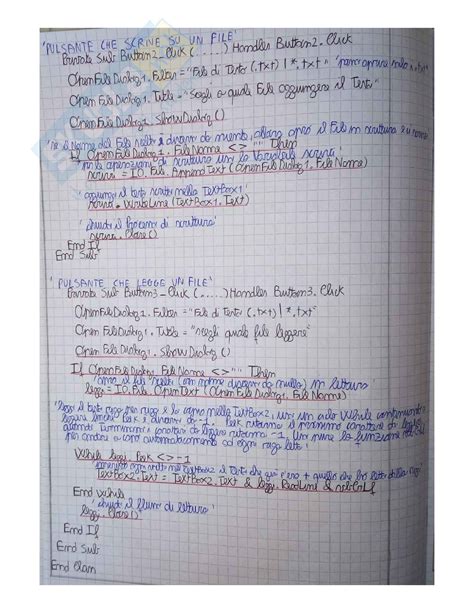 'PULSANTE CHE SCRIVE SU UN FILE'
Private Sub Button2_Click (......) Handles Button2.Click
OpenFileDialog1.Filter = "File di Testo (.txt) | *.txt" 'per aprire solo .txt
OpenFileDialog1.Title = "Scegli a quale File aggiungere il Testo"
OpenFileDialog1.ShowDialog ()
'se il Nome del File scelto è diverso da niente, allora apro il File in scrittura
If OpenFileDialog1.FileName <> "" Then
'per le operazioni di scrittura uso la Variabile scrivi'
scrivi = IO.File.AppendText (OpenFileDialog1.FileName)
'aggiungo il testo scritto nella TextBox1'
scrivi.WriteLine (TextBox1.Text)
'chiudi il processo di scrittura'
scrivi.Close ()
End If
End Sub
'PULSANTE CHE LEGGE UN FILE'
Private Sub Button3_Click (......) Handles Button3.Click
OpenFileDialog1.Filter = "File di Testo (.txt) | *.txt"
OpenFileDialog1.Title = "scegli quale file leggere"
OpenFileDialog1.ShowDialog ()
If OpenFileDialog1.FileName <> "" Then
'apro il file scelto (con nome diverso da nullo) in lettura
leggi = IO.File.OpenText (OpenFileDialog1.FileName)
'leggi il testo riga per riga e lo copio nella TextBox2, uso un ciclo While
Peek è diverso da -1. Peek ritorna il prossimo carattere da leggere
quando terminano i caratteri da leggere ritorna -1. la funzione
per andare a capo automaticamente ad ogni riga letta'
While leggi.Peek <> -1
TextBox2.Text = TextBox2.Text & leggi.ReadLine & vbCrLf
End While
'chiudi il flusso di lettura'
leggi.Close ()
End If
End Sub
End Class